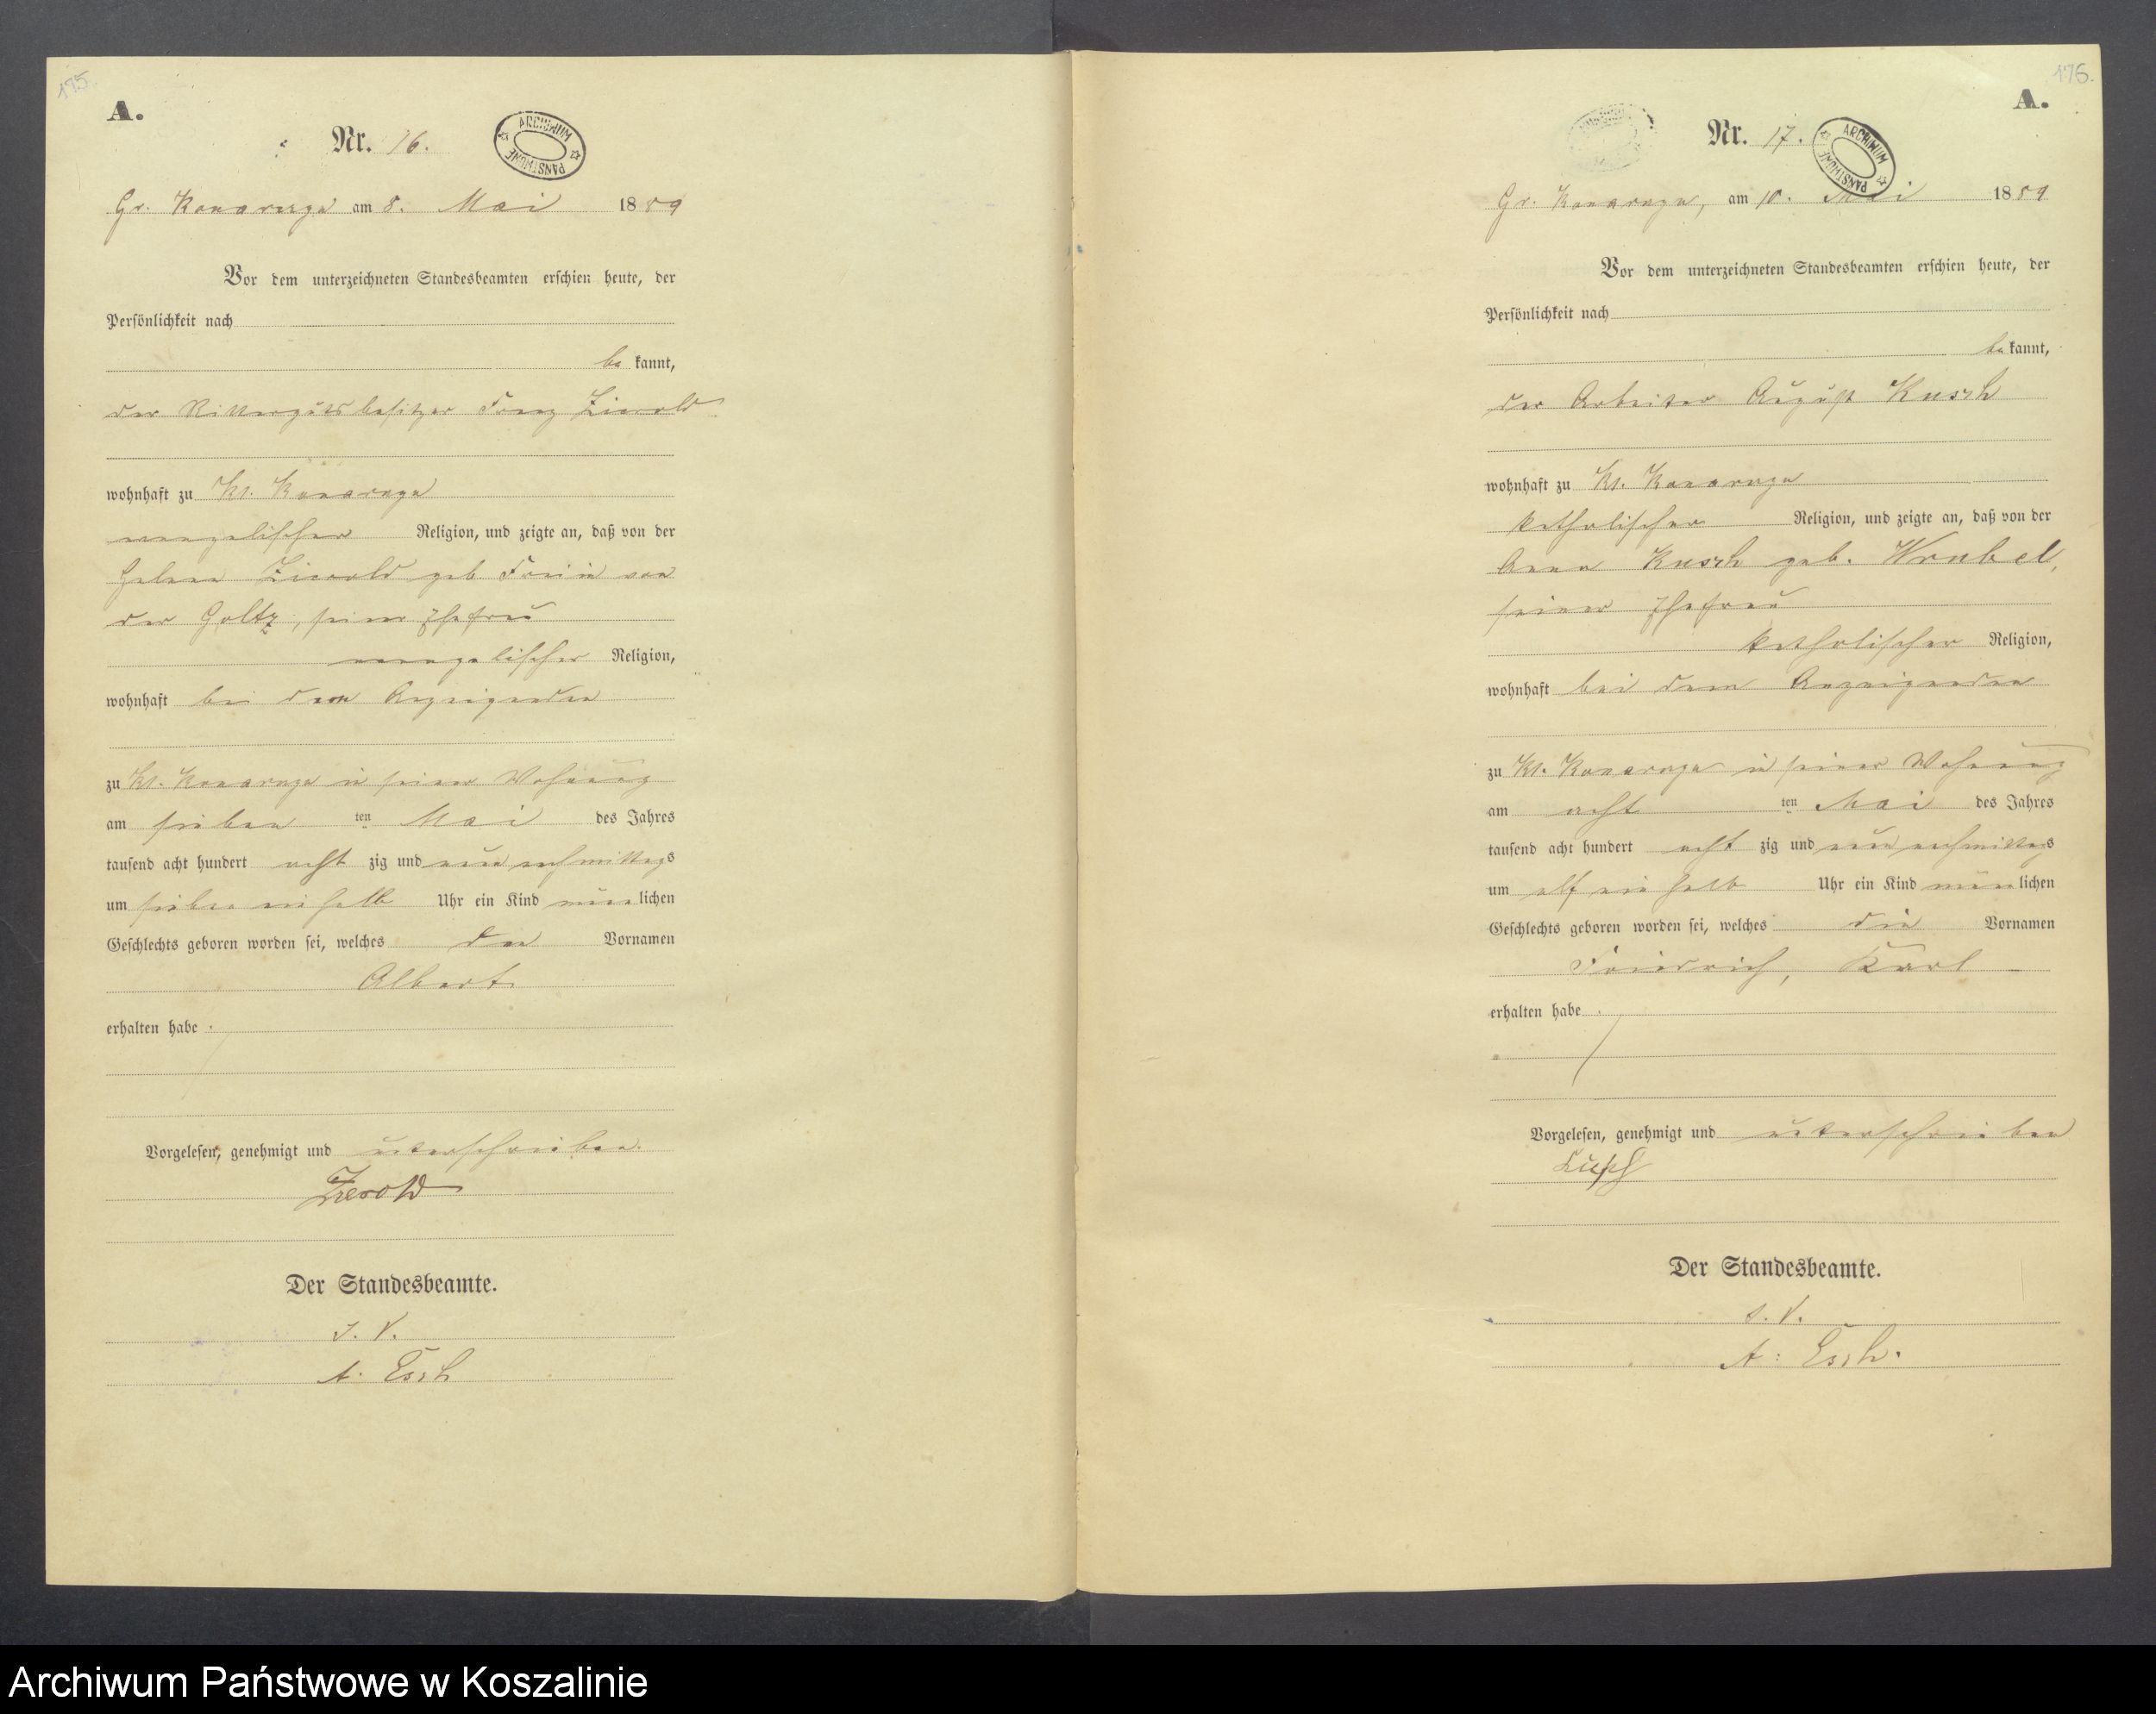 175.
A.
Nr. 16.
ARCHIWUM PAŃSTWOWE
Gr. Konarczyn am 8. Mai 1889
Vor dem unterzeichneten Standesbeamten erschien heute, der
Persönlichkeit nach
be kannt,
der Rittergutsbesitzer Franz
wohnhaft zu Kl.
evangelischer Religion, und zeigte an, daß von der
Helene geb. Freiin von
der Goltz, seiner Ehefrau
evangelischer Religion,
wohnhaft bei dem Anzeigenden
zu Kl. in seiner Wohnung
am sieben ten Mai des Jahres
tausend acht hundert acht zig und neun nachmittags
um sieben ein halb Uhr ein Kind männ lichen
Geschlechts geboren worden sei, welches den Vornamen
Albert
erhalten habe.
Vorgelesen, genehmigt und unterschrieben.
Der Standesbeamte.
I. V.
A. Esch
176.
A.
Nr. 17.
ARCHIWUM PAŃSTWOWE
Gr. am 10. Mai 1889
Vor dem unterzeichneten Standesbeamten erschien heute, der
Persönlichkeit nach
be kannt,
der Arbeiter August Kusch
wohnhaft zu Kl.
katholischer Religion, und zeigte an, daß von der
Anna Kusch geb. Wrubel,
seiner Ehefrau
katholischer Religion,
wohnhaft bei dem Anzeigenden
zu Kl. in seiner Wohnung
am acht ten Mai des Jahres
tausend acht hundert acht zig und neun nachmittags
um elf ein halb Uhr ein Kind männ lichen
Geschlechts geboren worden sei, welches die Vornamen
Friedrich, Karl
erhalten habe.
Vorgelesen, genehmigt und unterschrieben
Kusch
Der Standesbeamte.
I. V.
A. Esch.
Archiwum Państwowe w Koszalinie